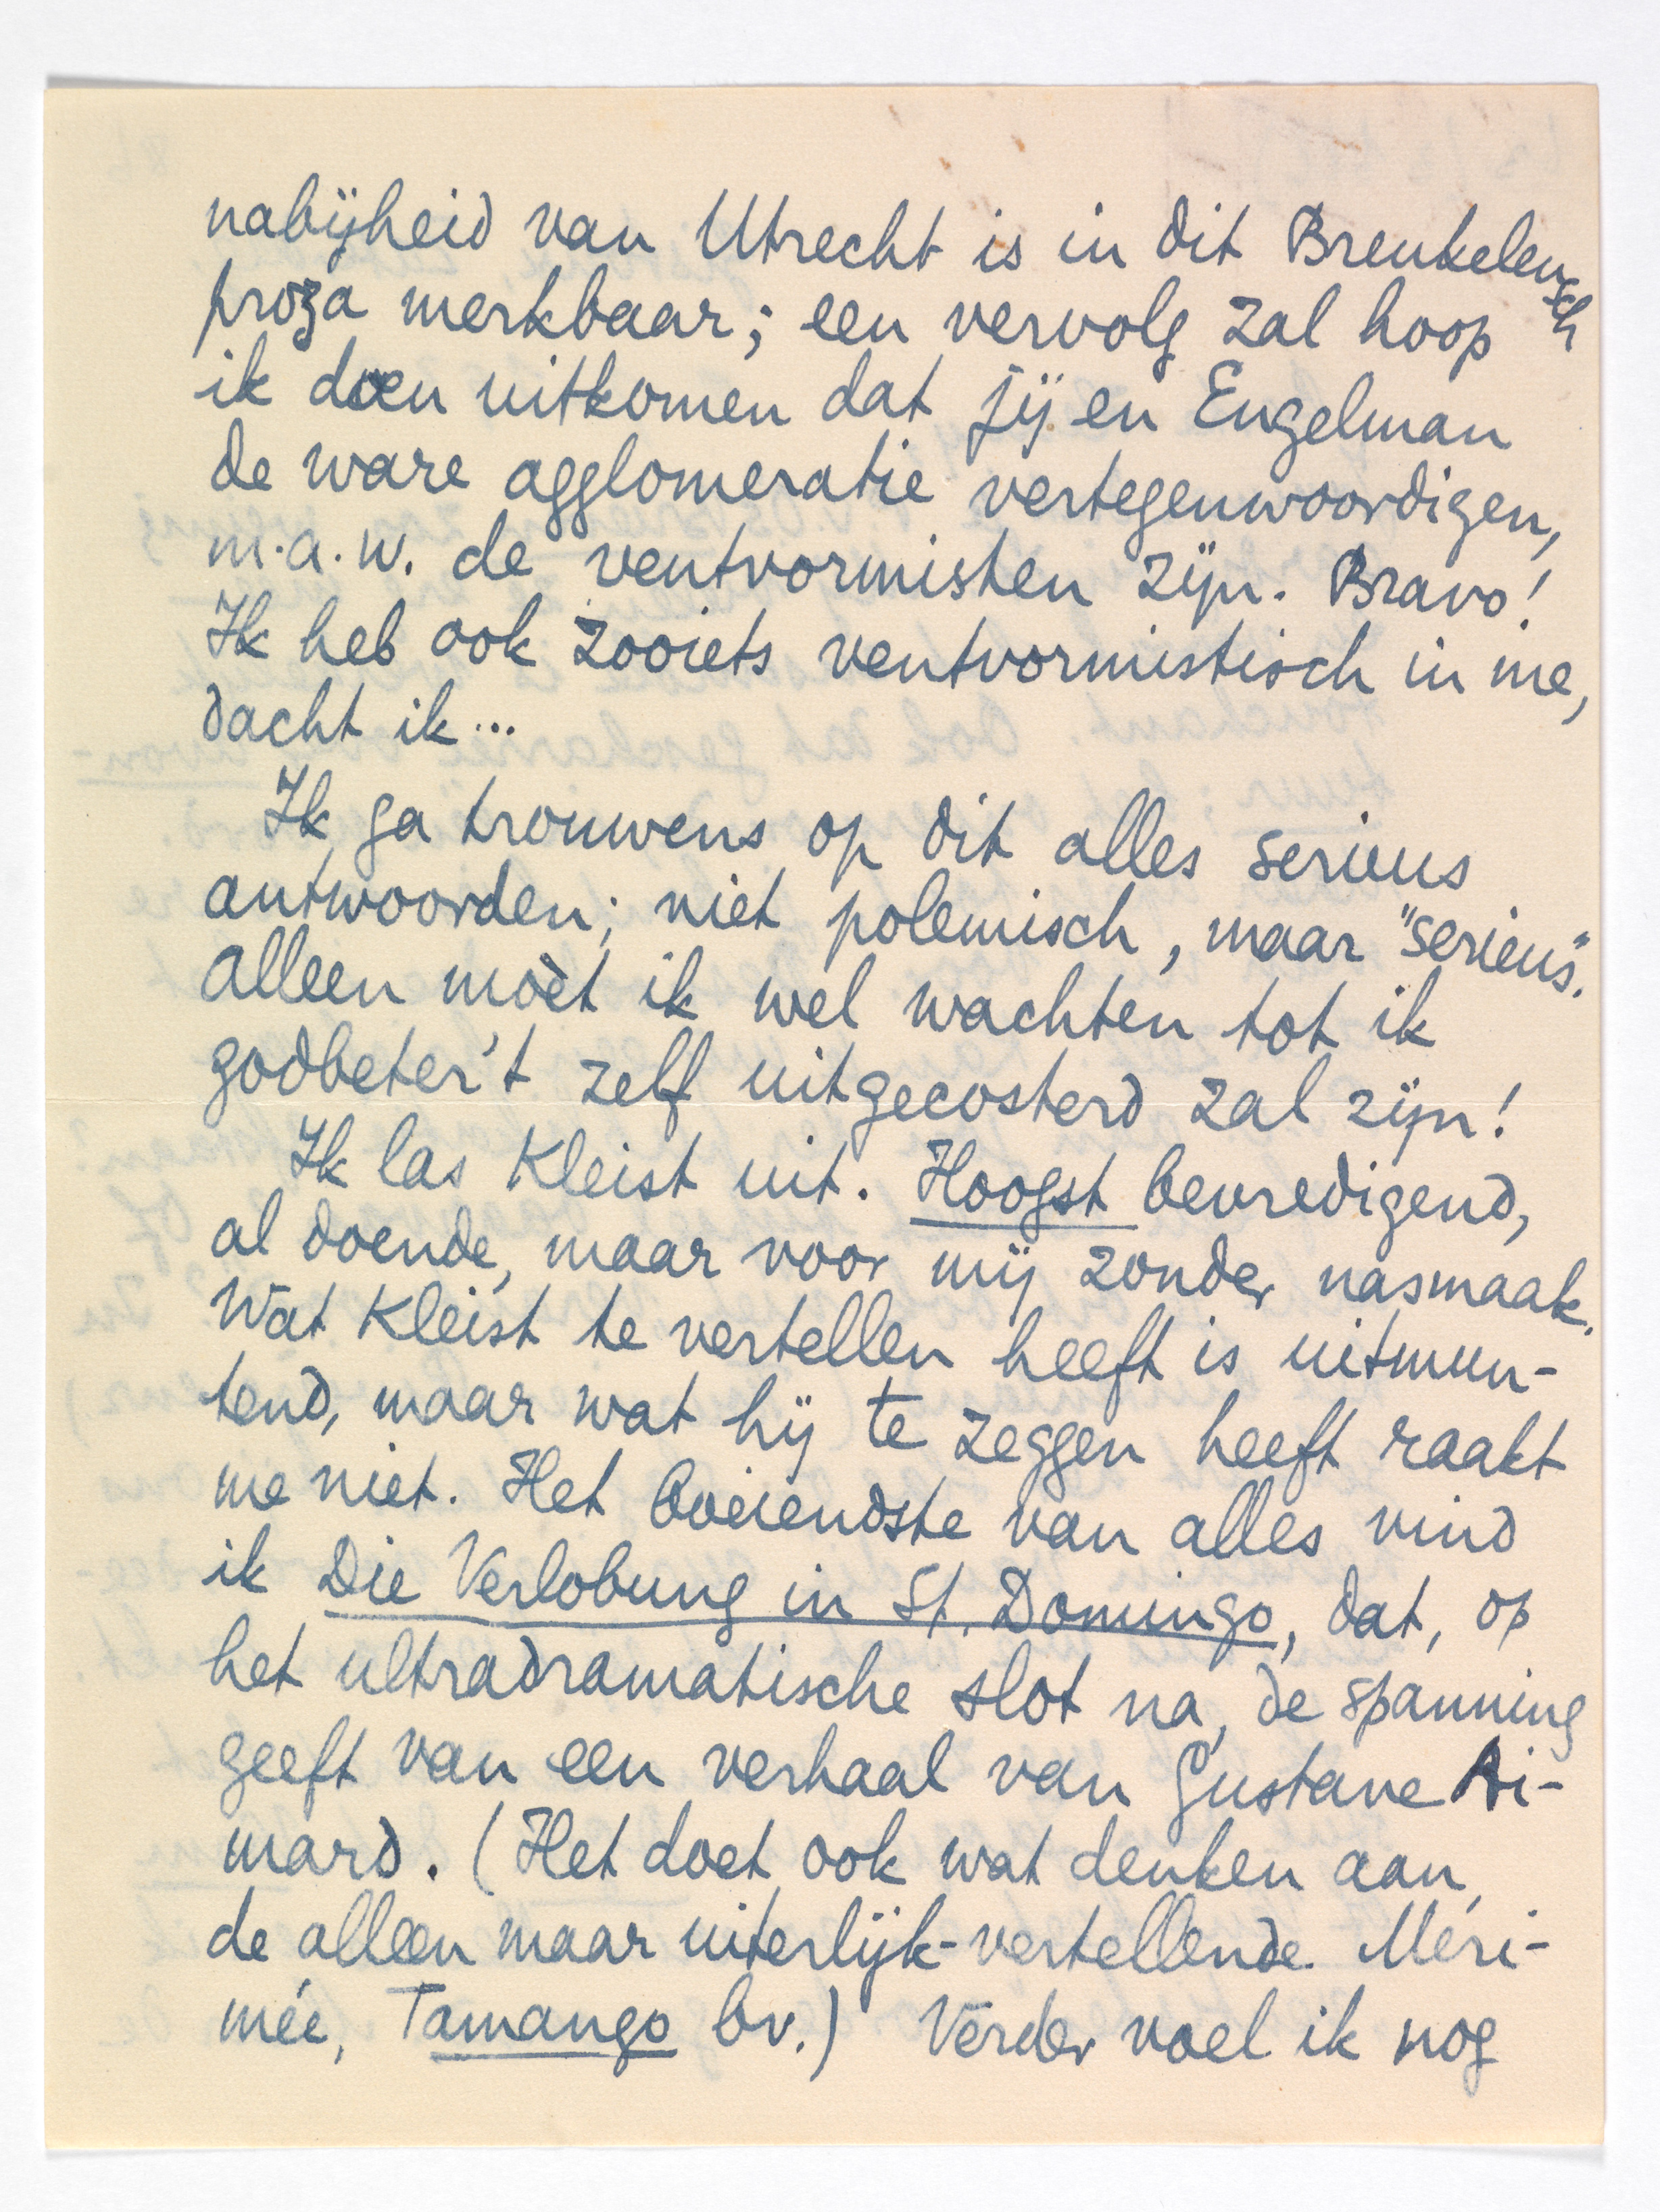 nabijheid van Utrecht is in dit Breukelensch
proza merkbaar; een vervolg zal hoop
ik doen uitkomen dat jij en Engelman
de ware agglomeratie vertegenwoordigen,
m.a.w. de ventvormisten zijn. Bravo!
Ik heb ook zooiets ventvormistisch in me,
dacht ik...
Ik ga trouwens op dit alles serieus
antwoorden; niet polemisch, maar "serieus".
Alleen moèt ik wel wachten tot ik
godbeter't zelf uitgecosterd zal zijn!
Ik las Kleist uit. Hoogst bevredigend,
al doende, maar voor mij zonder nasmaak.
Wat Kleist te vertellen heeft is uitmun-
tend, maar wat hij te zeggen heeft raakt
me niet. Het boeiendste van alles vind
ik Die Verlobung in St. Domingo, dat, op
het ultradramatische slot na, de spanning
geeft van een verhaal van Gustave Ai-
mard. (Het doet ook wat denken aan
de alleen maar uiterlijk-vertellende Méri-
mée, Tamango bv.) Verder voel ik nog